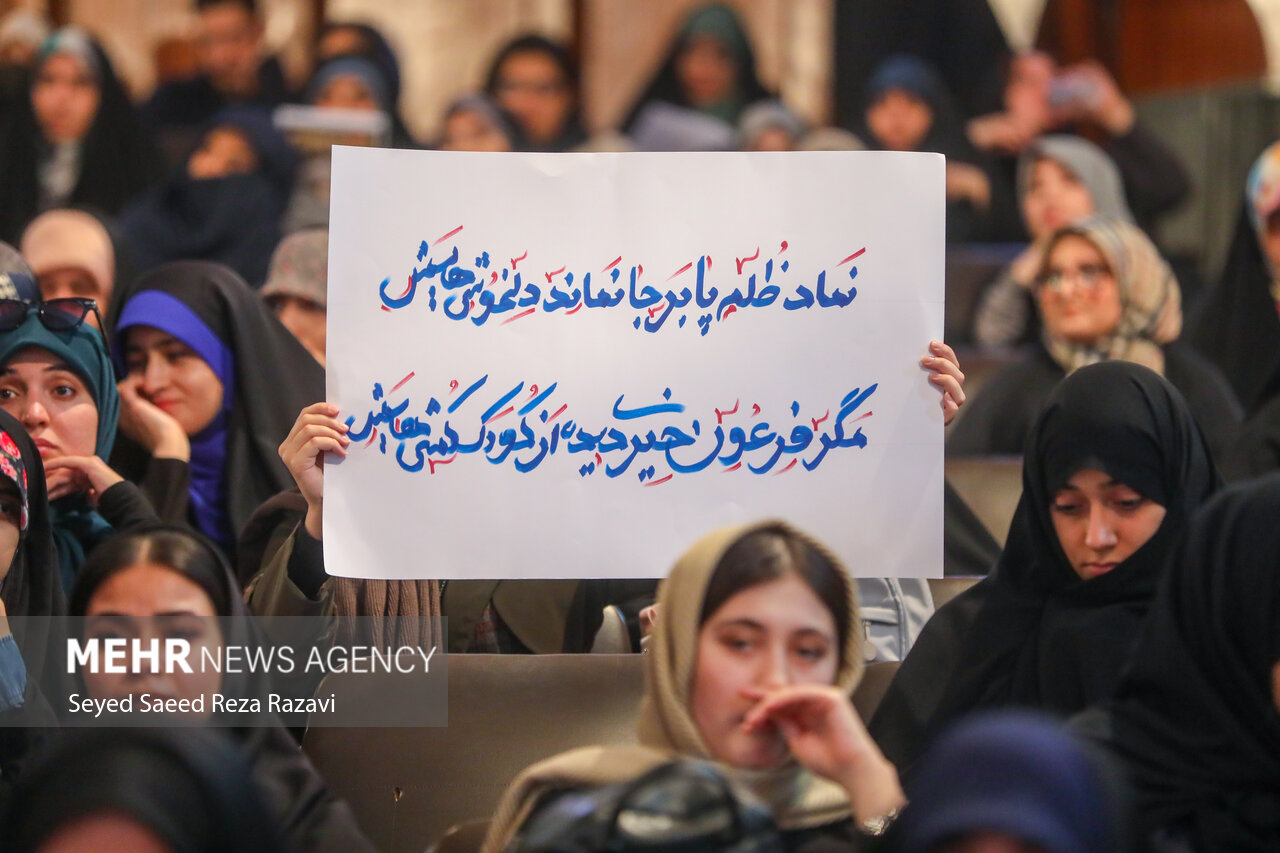 نماد ظلم پا بر جا نماند دلخوشی هایش
مگر فرعون خیر دید، از کودک کشی هایش
MEHR NEWS AGENCY
Seyed Saeed Reza Razavi